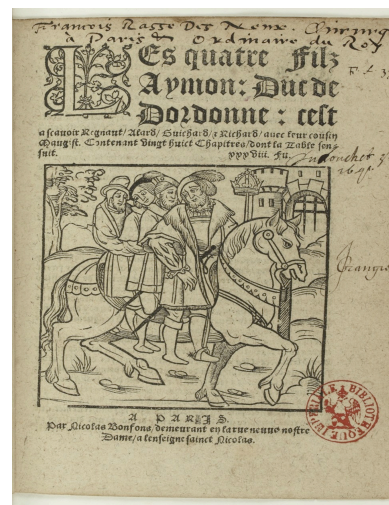 Francois Rasse Des Neux. Chirurg
à Paris & Ordinaire du Roy
LEs quatre Filz
Aymon: Duc de
Dordonne: cest
ascauoir Regnaut/ Alard/ Guichard/ & Richard/ auec leur cousin
Maugist. Contenant vingt huict Chapitres/ dont la Table sen
suit. xxxviii. Fu.
A PARIS.
Par Nicolas Bonfons, demeurant en la rue neuue nostre
Dame/ a lenseigne sainct Nicolas.
BIBLIOTHEQUE IMPERIALE